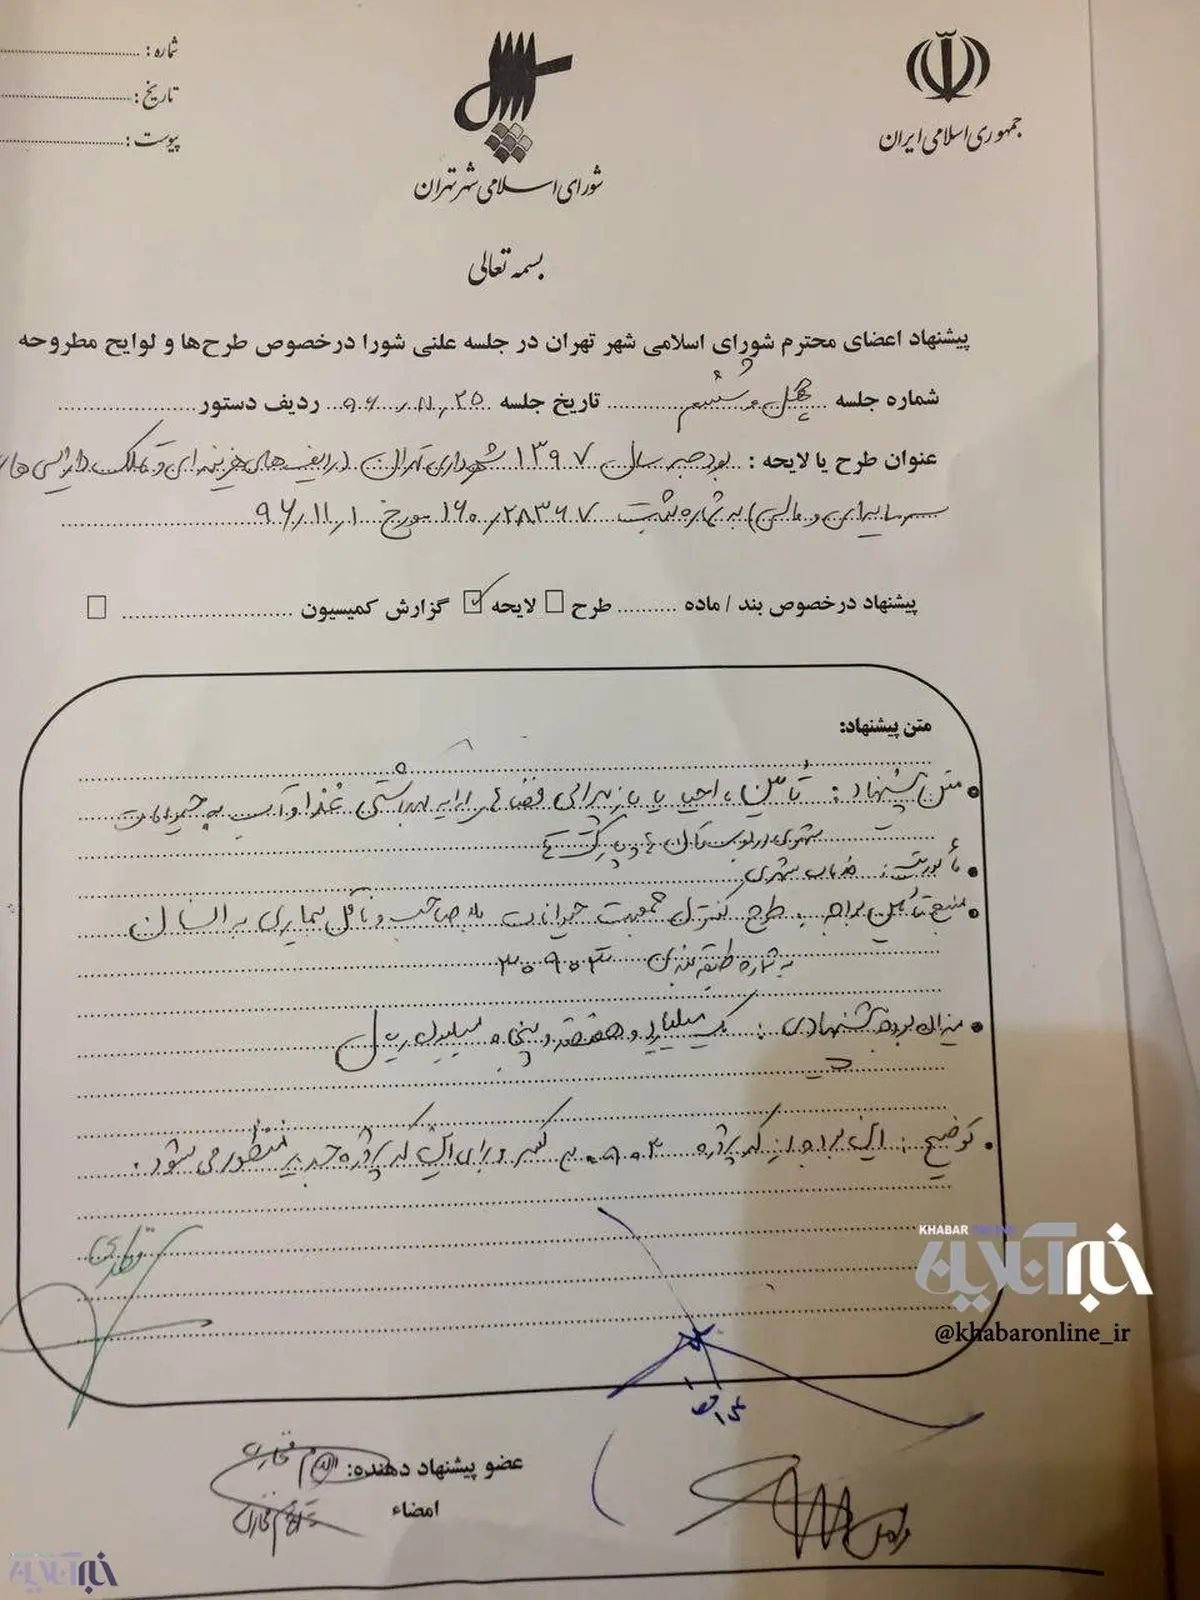 جمهوری اسلامی ایران
شورای اسلامی شهر تهران
شماره:
تاریخ:
پیوست:
بسمه تعالی
پیشنهاد اعضای محترم شورای اسلامی شهر تهران در جلسه علنی شورا درخصوص طرح‌ها و لوایح مطروحه
شماره جلسه چهل و ششم تاریخ جلسه ۹۶/۱۱/۲۵ ردیف دستور
عنوان طرح یا لایحه: بودجه سال ۱۳۹۷ شهرداری تهران (ردیف های هزینه ای و تملک دارایی های
سرمایه ای و مالی) به شماره ثبت ۱۶۰/۲۸۳۶۷ مورخ ۹۶/۱۱/۱
پیشنهاد درخصوص بند / ماده طرح لایحه گزارش کمیسیون
متن پیشنهاد:
متن پیشنهاد: تأمین، احیا یا بازپیرایی فضا های ارایه بهداشتی غذا و آب به حیوانات
شهری در بوستان ها و پارک ها
مأموریت: خدمات شهری
منبع تأمین بودجه: طرح کنترل جمعیت حیوانات بلاصاحب و ناقل بیماری به انسان
به شماره طبقه بندی ۳۰۹۰۳
میزان بودجه پیشنهادی: یک میلیارد و هفتصد و پنجاه میلیون ریال
توضیح: این بودجه از کد پروژه ۳۰۹۰۳ کسر و برای آن کد پروژه جدید منظور می شود.
KHABAR ONLINE
خبرآنلاین
@khabaronline_ir
عضو پیشنهاد دهنده: الهام فخاری
امضاء
الهام فخاری
خبرآنلاین